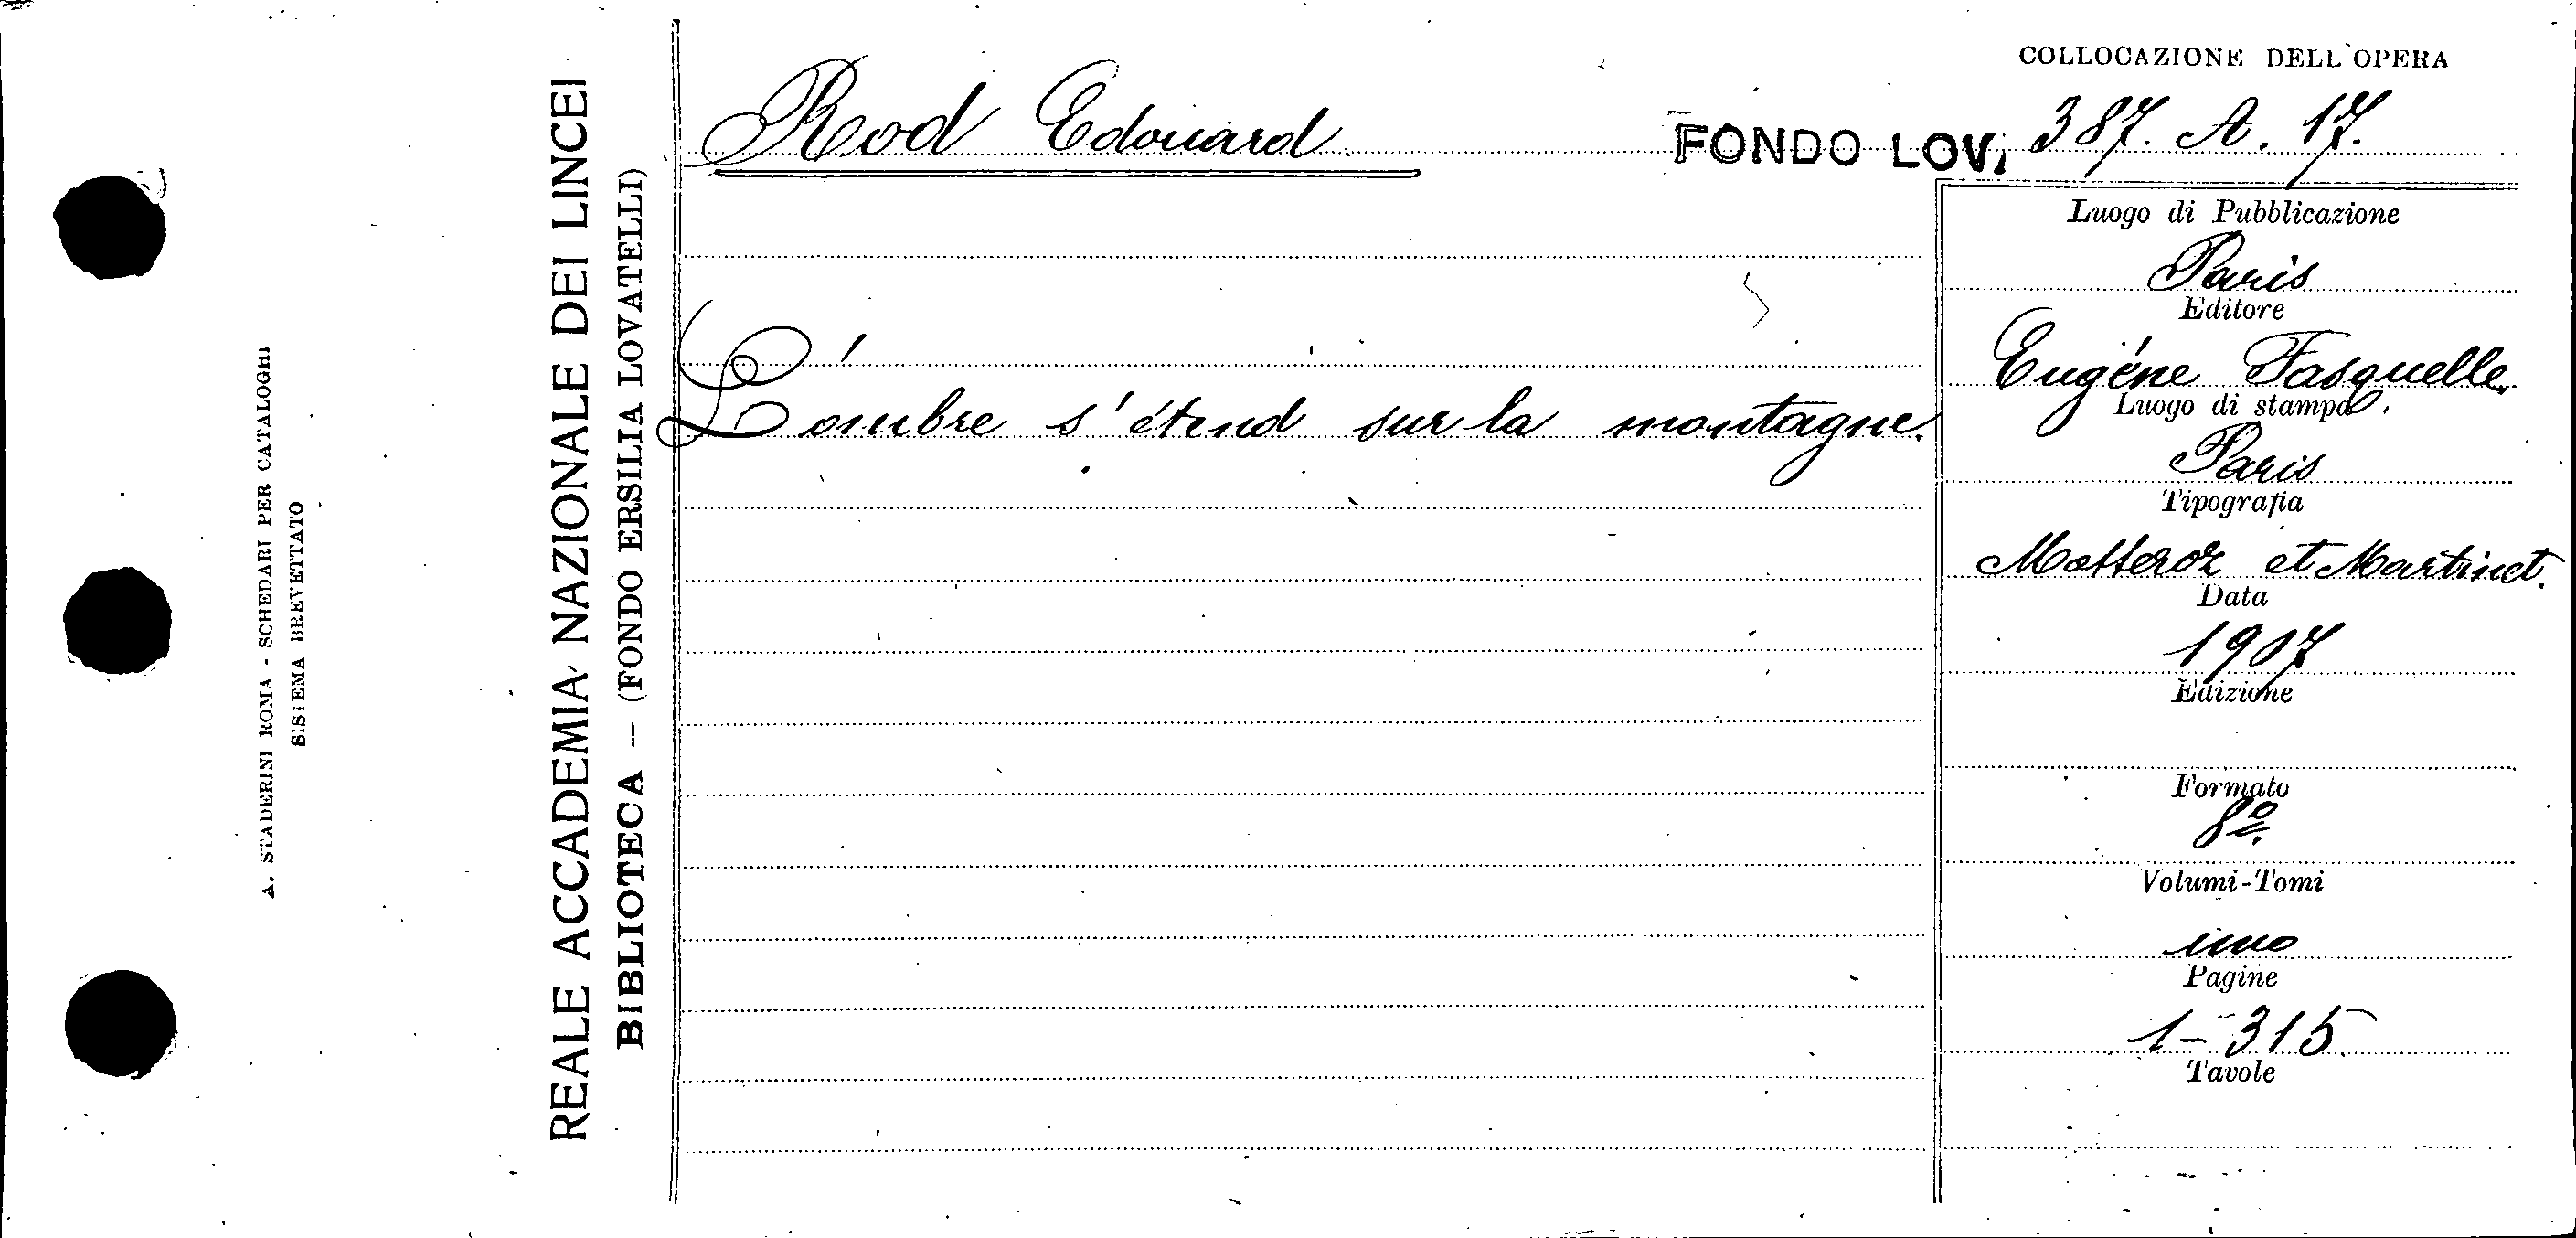 A. STADERINI ROMA - SCHEDARI PER CATALOGHI
SISTEMA BREVETTATO
REALE ACCADEMIA NAZIONALE DEI LINCEI
BIBLIOTECA — (FONDO ERSILIA LOVATELLI)
COLLOCAZIONE DELL'OPERA
Rod Edouard.
FONDO LOV. 387. A. 17.
L'ombre s'étend sur la montagne.
Luogo di Pubblicazione
Paris
Editore
Eugéne Fasquelle.
Luogo di stampa
Paris
Tipografia
Motteroz et Martinet.
Data
1907
Edizione
Formato
8º
Volumi-Tomi
uno
Pagine
1-315
Tavole